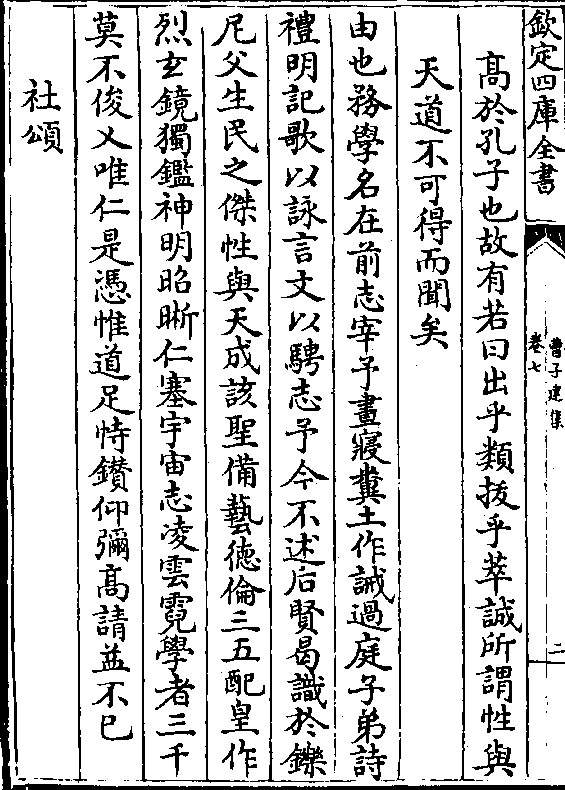 欽定四庫全書
曹子建集
卷七
二
髙於孔子也故有若曰出乎類拔乎萃誠所謂性與
天道不可得而聞矣
由也務學名在前志宰予晝寢糞土作誡過庭子弟詩
禮明記歌以詠言文以騁志予今不述后賢曷識於鑠
尼父生民之傑性與天成該聖備藝徳倫三五配皇作
烈玄鏡獨鑑神明昭晰仁塞宇宙志凌雲霓學者三千
莫不俊乂唯仁是憑惟道足恃鑚仰彌髙請益不已
社頌